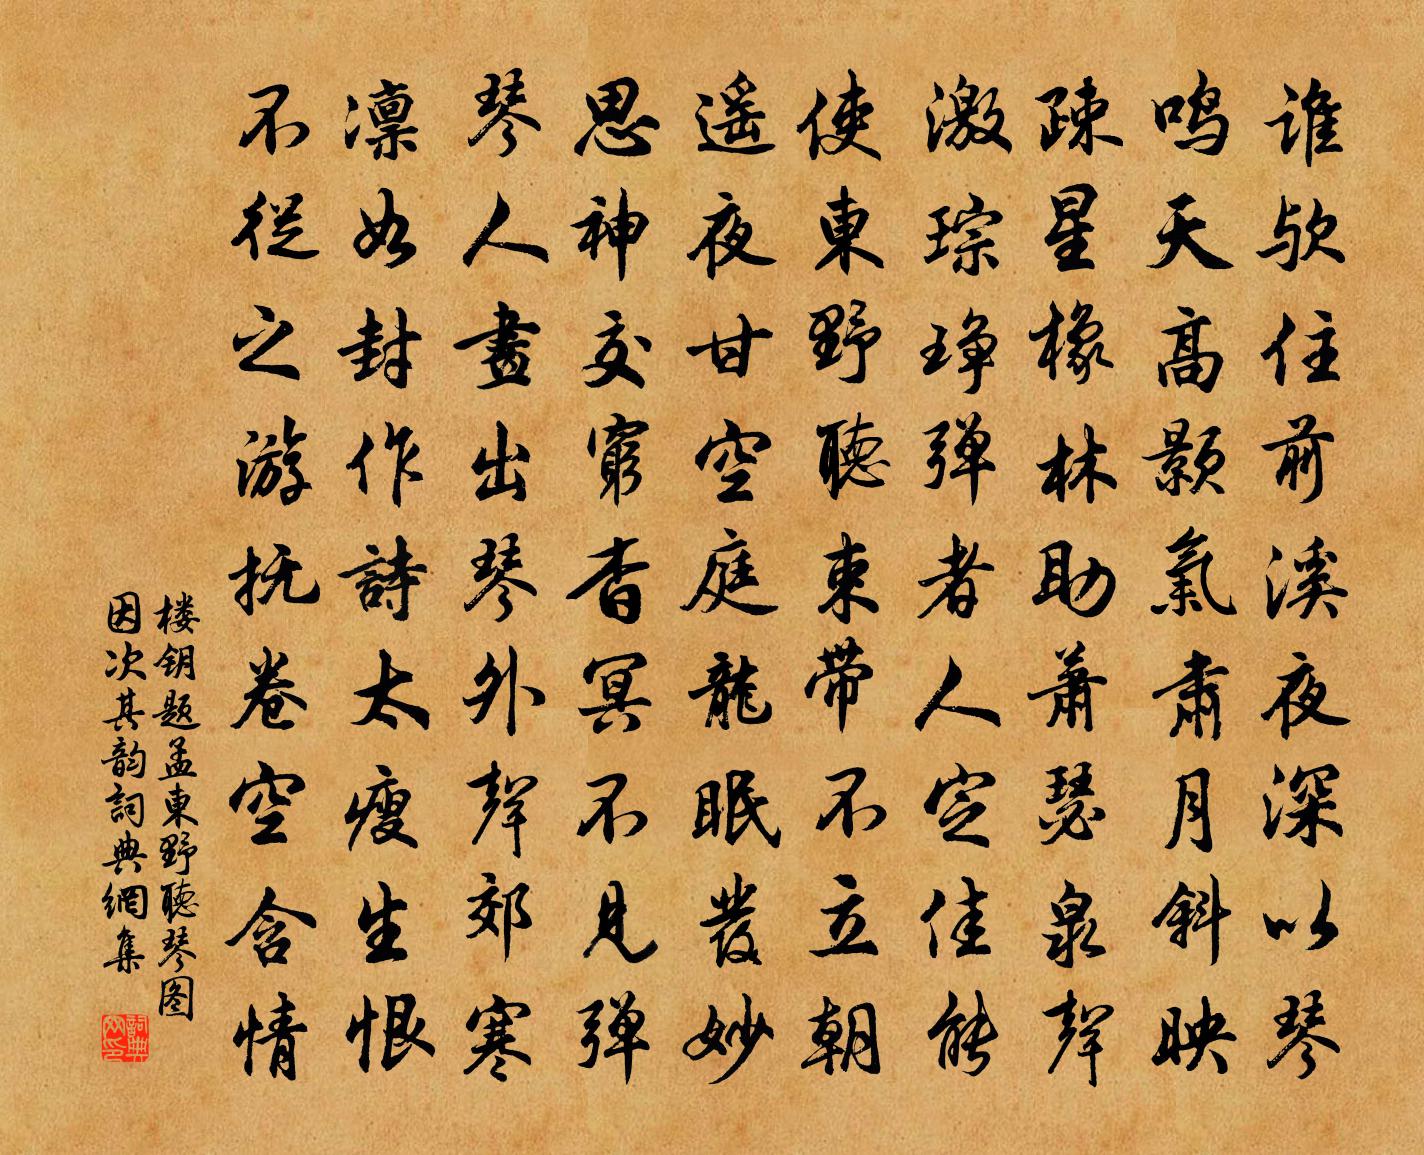 誰欤住前溪夜深以琴
鸣天高顥氣肅月斜映
疎星橡林助蕭瑟泉聲
激琮琤弹者人定佳能
使東野聽束帶不立朝
遥夜甘空庭龍眠發妙
思神交窮杳冥不見弹
琴人畫出琴外聲郊寒
凛如封作詩太瘦生恨
不從之游抚卷空含情
楼钥题孟東野聽琴图
因次其韵詞典網集
詞典
网印